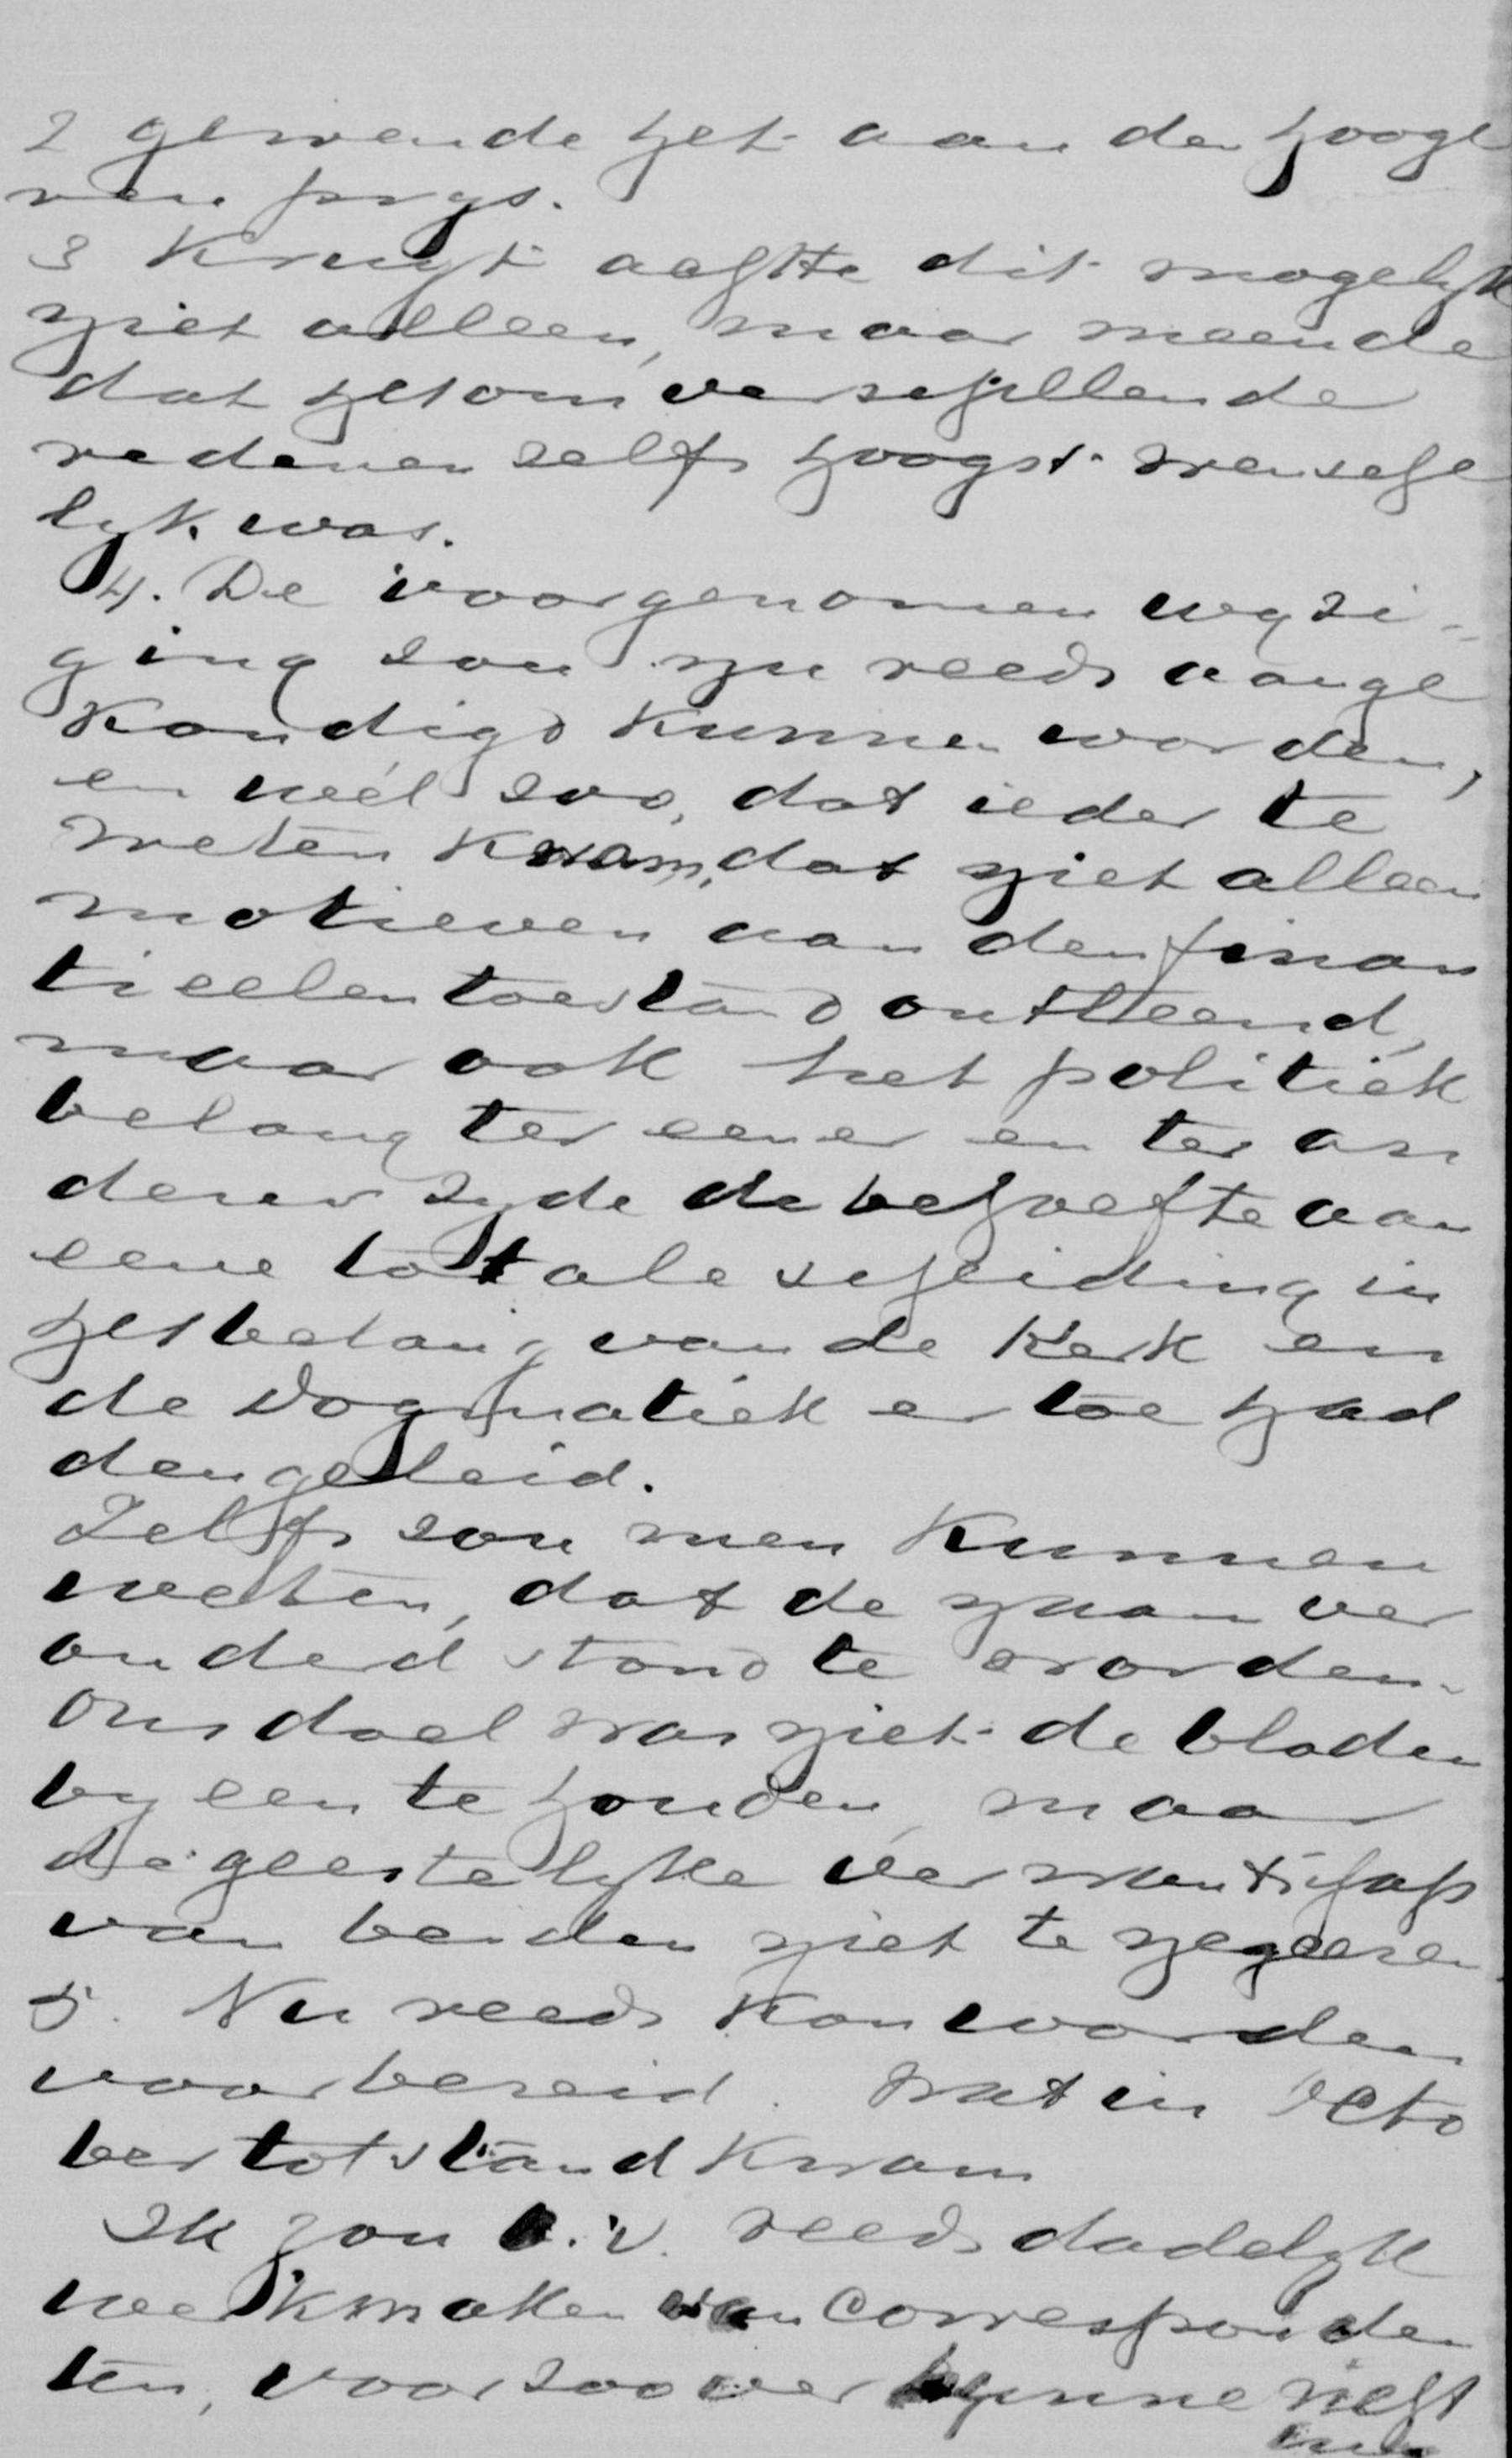 2 gewende het aan den hooge
ren prys.
3 Kruyt achtte dit mogelyk
niet alleen, maar meende
dat het om verschillende
redenen zelfs hoogst wensche
lyk was.
4. De voorgenomen wyzi-
ging zou nu reeds aange
kondigd kunnen worden,
en wél zoo, dat ieder te
weten kwam, dat niet alleen
motieven aan den finan
tieelen toestand ontleend,
maar ook het politiek
belang ter eener en ter an
derer zyde de behoefte aan
eene totale scheiding in
het belang van de Kerk en
de Dogmatiek er toe had
den geleid.
Zelfs zou men kunnen
weten, dat de naam ver
anderd stond te worden.
Ons doel was niet de bladen
byeen te houden, maar
de geestelyke verwantschap
van beiden niet te negeeren.
5. Nu reeds kon worden
voorbereid. wat in Octo
ber tot stand kwam
Ik zou b.v. reeds dadelyk
werk maken van Corresponden
ten, voor zoover hunne